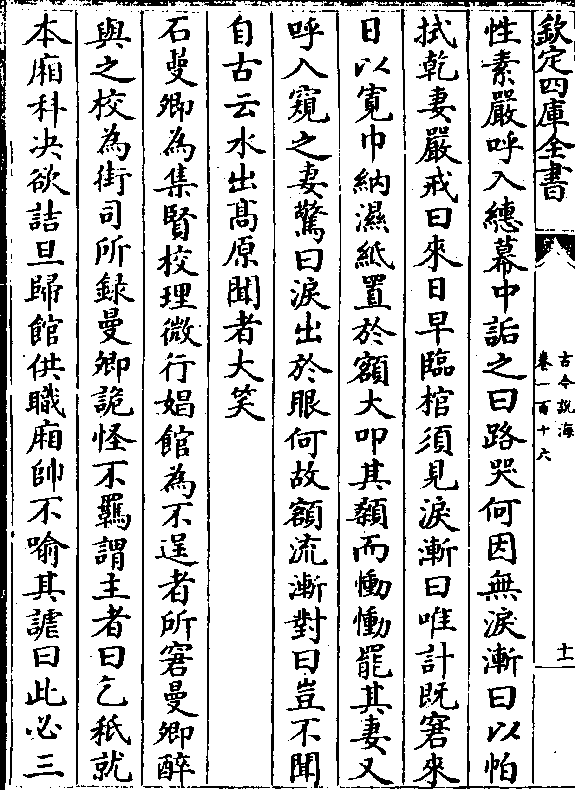 欽定四庫全書
古今說海
卷一百十六
十一
性素嚴呼入繐幕中詬之曰路哭何因無淚漸曰以帕
拭乾妻嚴戒曰來日早臨棺須見淚漸曰唯計既窘來
日以寛巾納濕紙置於額大叩其顙而慟慟罷其妻又
呼入窺之妻驚曰淚出於眼何故額流漸對曰豈不聞
自古云水出髙原聞者大笑
石曼卿為集賢校理微行娼館為不逞者所窘曼卿醉
與之校為街司所録曼卿詭怪不羈謂主者曰乞秪就
本廂科决欲詰旦歸館供職廂帥不喻其謔曰此必三